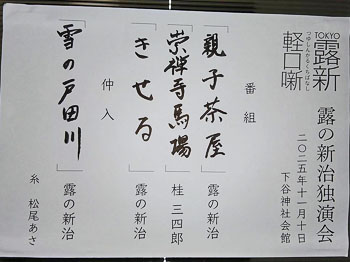 TOKYO
露新
軽口噺
つゆしんかるくちばなし
露の新治独演会
二〇二五年十一月十日
下谷神社会館
番組
「親子茶屋」露の新治
「崇禅寺馬場」桂三四郎
「きせる」露の新治
仲入
「雪の戸田川」露の新治
糸 松尾あさ